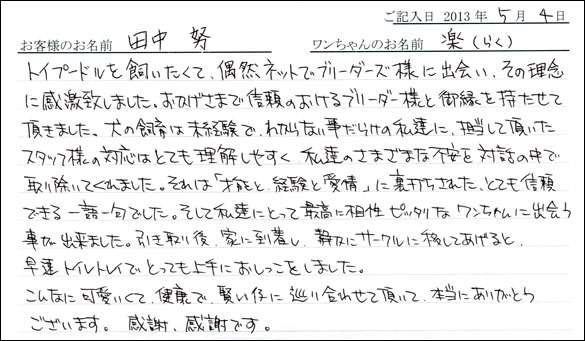 ご記入日 2013年 5月 4日
お客様のお名前 田中 努 ワンちゃんのお名前 楽(らく)
トイプードルを飼いたくて、偶然ネットでブリーダーズ様に出会い、その理念
に感激致しました。おかげさまで信頼のおけるブリーダー様と御縁を持たせて
頂きました。犬の飼育は未経験で、わからない事だらけの私達に、担当して頂いた
スタッフ様の対応はとても理解しやすく、私達のさまざまな不安を対話の中で
取り除いてくれました。それは「才能と、経験と愛情」に裏打ちされた、とても信頼
できる一語一句でした。そして私達にとって最高に相性ピッタリなワンちゃんに出会う
事が出来ました。引き取り後、家に到着し、静かにサークルに移してあげると、
早速トイルトレイでとっても上手におしっこをしました。
こんなに可愛いくて、健康で、賢い仔に巡り合わせて頂いて、本当にありがとう
ございます。感謝、感謝です。